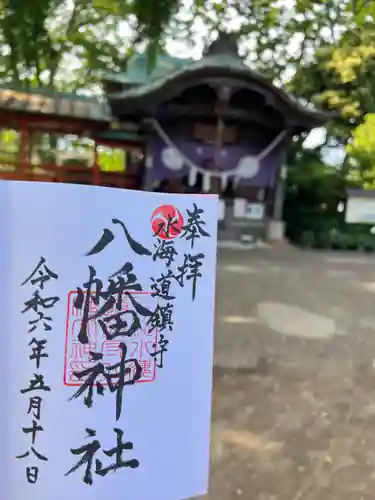 奉拝
水海道鎮守
八幡神社
令和六年五月十八日